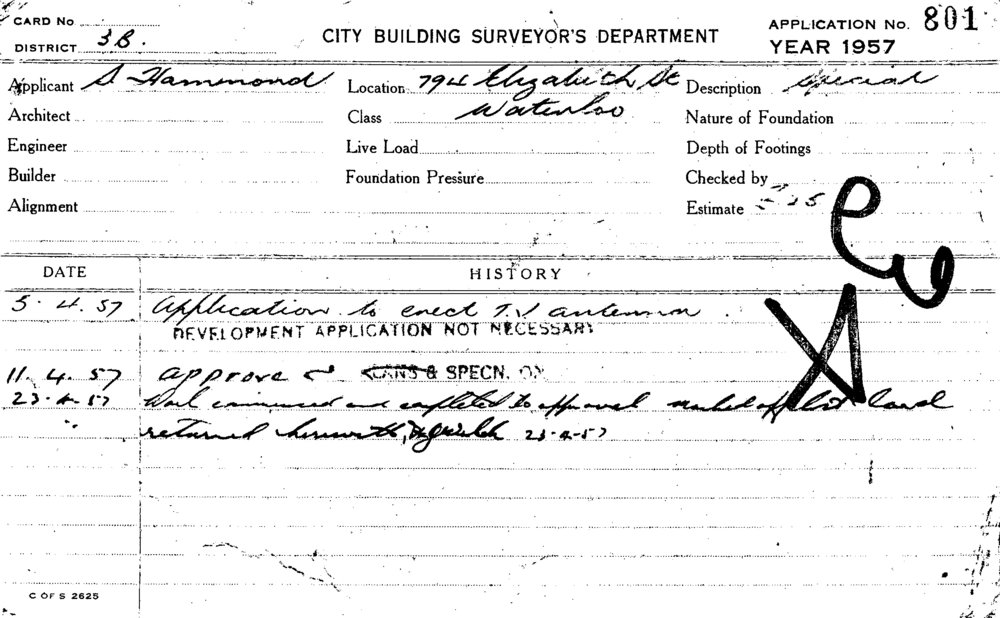 CARD No
DISTRICT 3B.
CITY BUILDING SURVEYOR'S DEPARTMENT
APPLICATION No. 801
YEAR 1957
Applicant S Hammond
Location 794 Elizabeth St
Description Special
Architect
Class Waterloo
Nature of Foundation
Engineer
Live Load
Depth of Footings
Builder
Foundation Pressure
Checked by
Alignment
Estimate
DATE HISTORY
5.4.57 Application to erect T.V antenna.
DEVELOPMENT APPLICATION NOT NECESSARY
11.4.57 approve PLANS & SPECN. ON
23-4-57 Work commenced and completed to approval marked off list card
returned herewith, 23-4-57
C OF S 2625